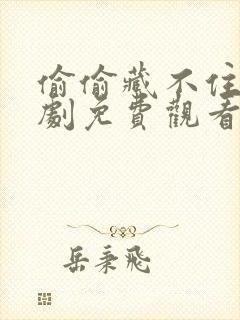 偷偷藏不住
劇免費觀看
岳秉飛